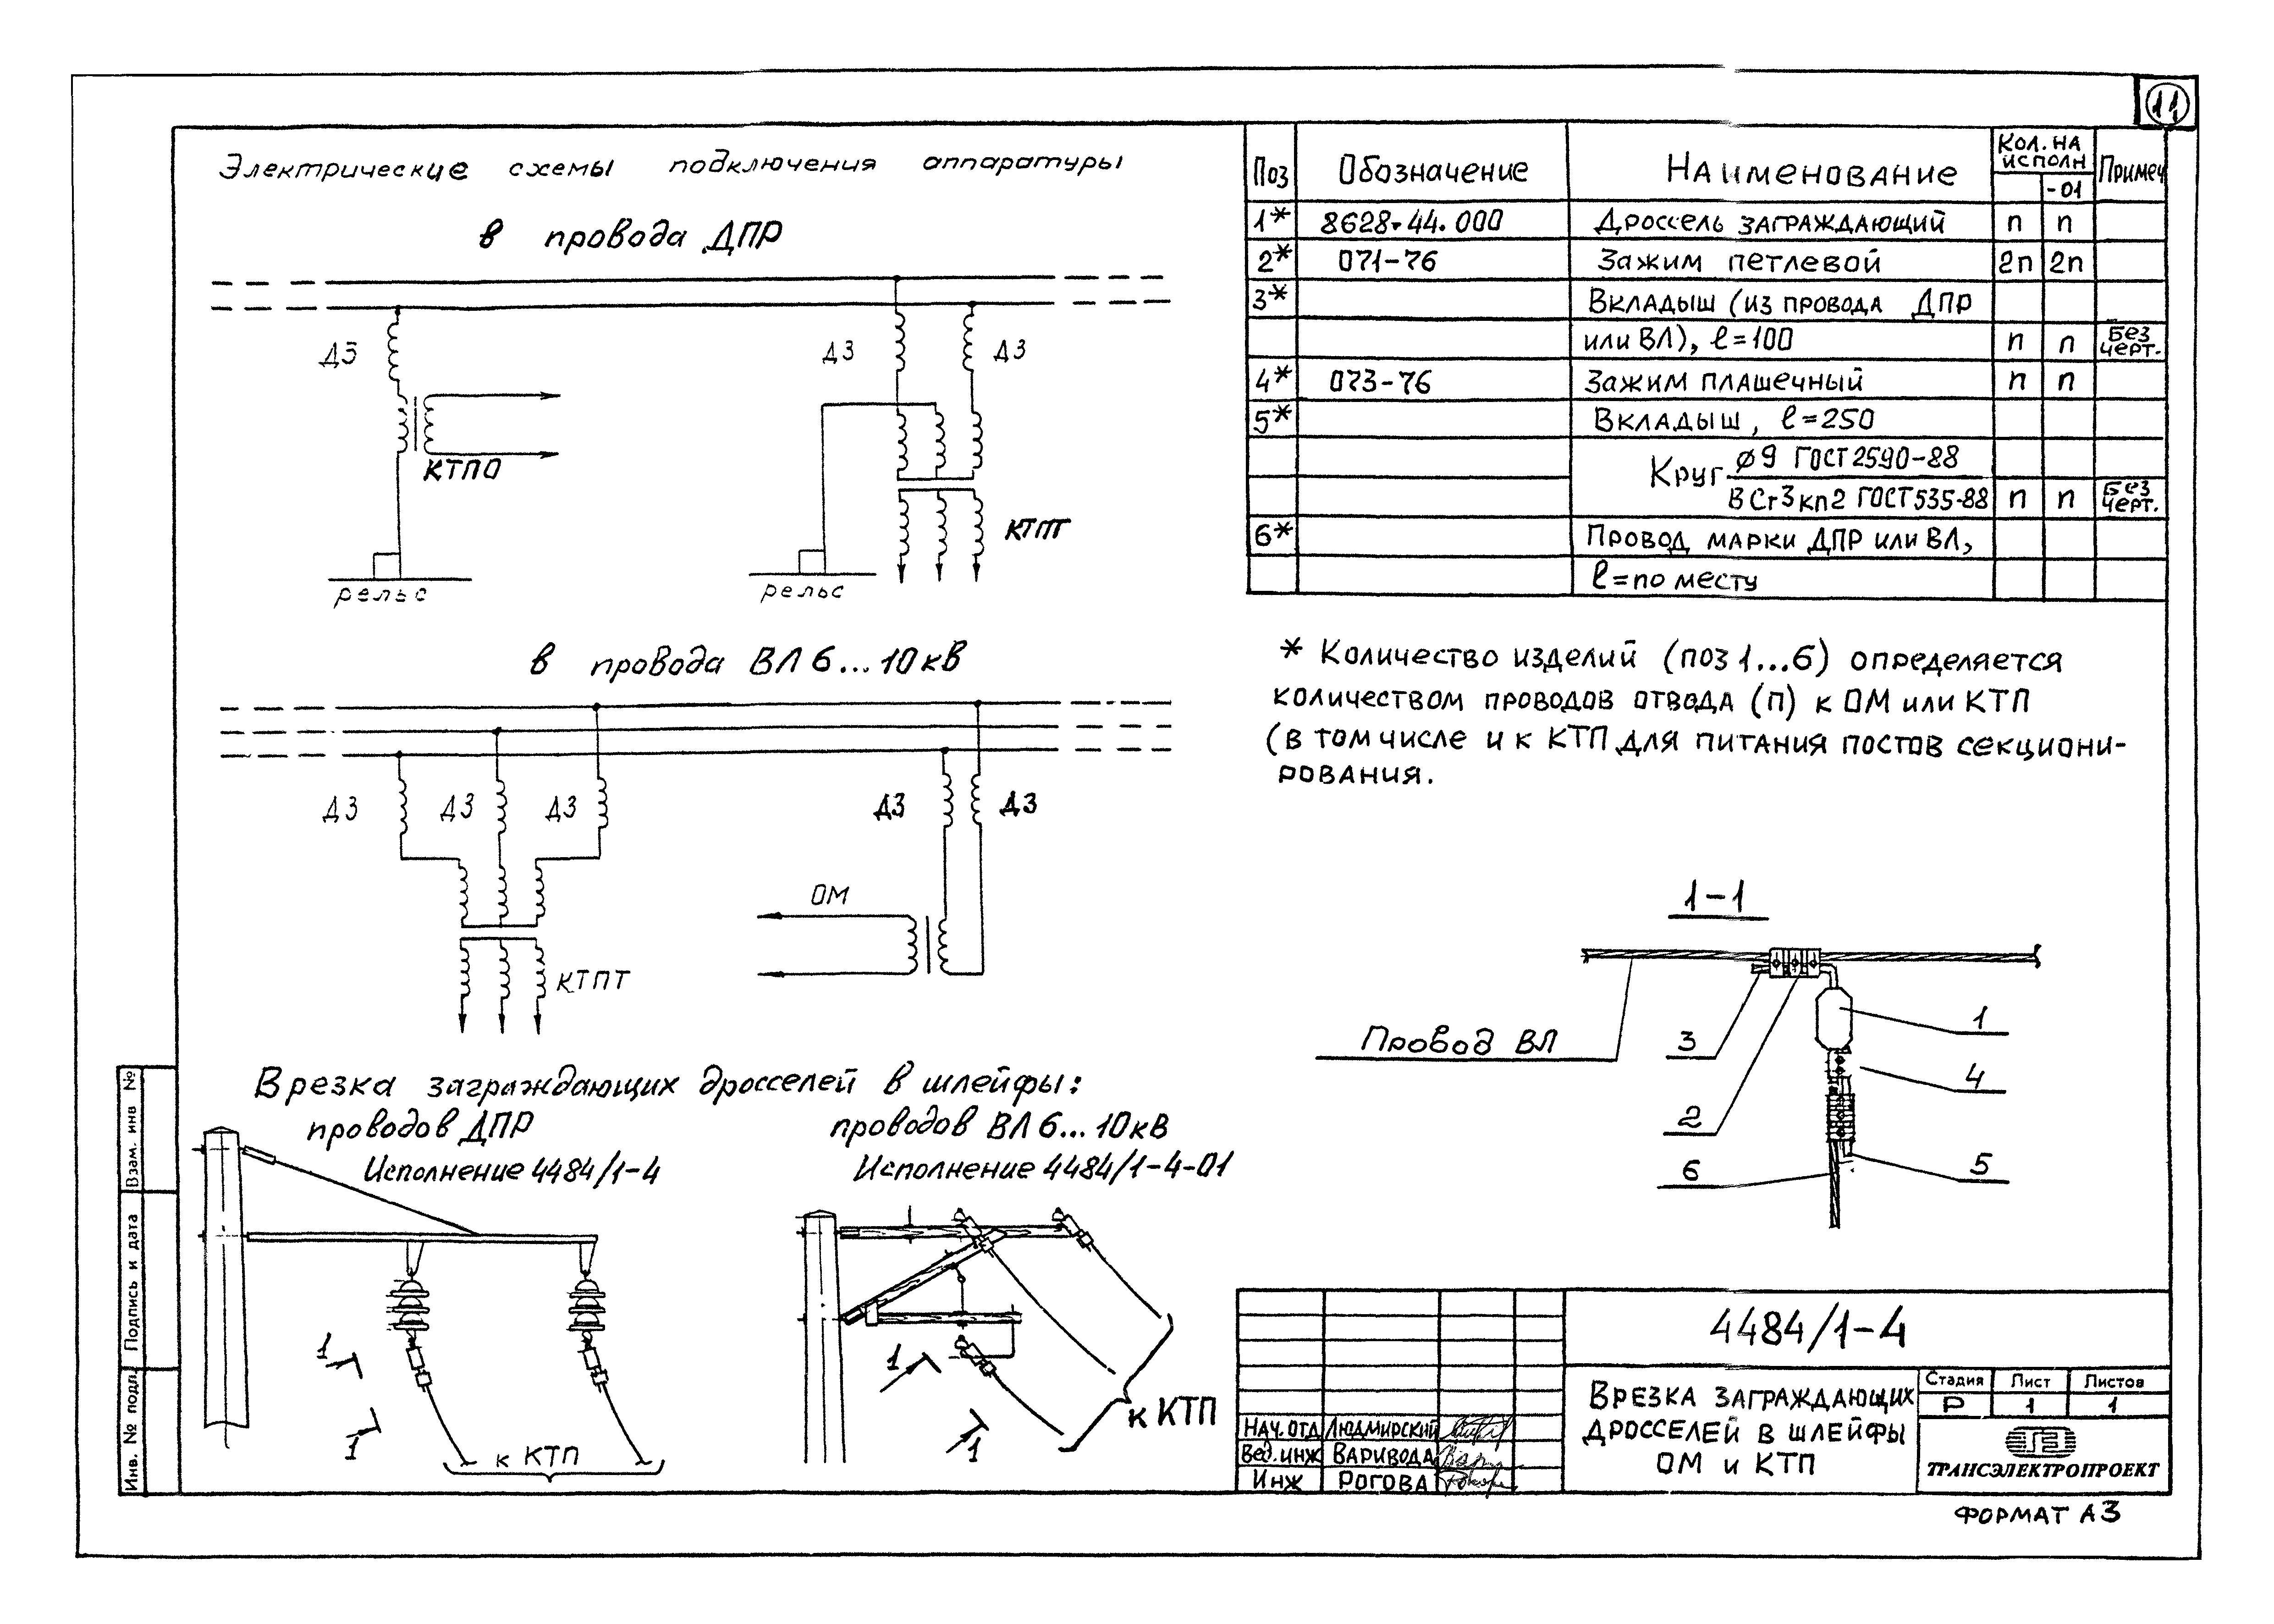 11
Электрические схемы подключения аппаратуры
в провода ДПР
ДЗ
ДЗ
ДЗ
КТПО
КТПТ
рельс
рельс
в провода ВЛ 6...10кв
ДЗ
ДЗ
ДЗ
ДЗ
ДЗ
ОМ
КТПТ
Врезка заграждающих дросселей в шлейфы:
проводов ДПР
Исполнение 4484/1-4
проводов ВЛ 6...10кв
Исполнение 4484/1-4-01
1
1
к КТП
1
1
к КТП
Поз Обозначение Наименование Кол. на исполн Примеч
-01
1* 8628-44.000 Дроссель заграждающий п п
2* 071-76 Зажим петлевой 2п 2п
3* Вкладыш (из провода ДПР
или ВЛ), ℓ=100 п п Без черт.
4* 073-76 Зажим плашечный п п
5* Вкладыш, ℓ=250
Круг ø9 ГОСТ 2590-88
ВСт3кп2 ГОСТ 535-88 п п Без черт.
6* Провод марки ДПР или ВЛ,
ℓ=по месту
* Количество изделий (поз 1...6) определяется
количеством проводов отвода (п) к ОМ или КТП
(в том числе и к КТП для питания постов секциони-
рования.
1-1
Провод ВЛ
3
2
6
1
4
5
4484/1-4
Врезка заграждающих
дросселей в шлейфы
ОМ и КТП
Стадия Лист Листов
Р 1 1
ТРАНСЭЛЕКТРОПРОЕКТ
Нач. отд Людмирский
Вед. инж Варивода
Инж Рогова
Формат А3
Взам. инв №
Подпись и дата
Инв. № подл.